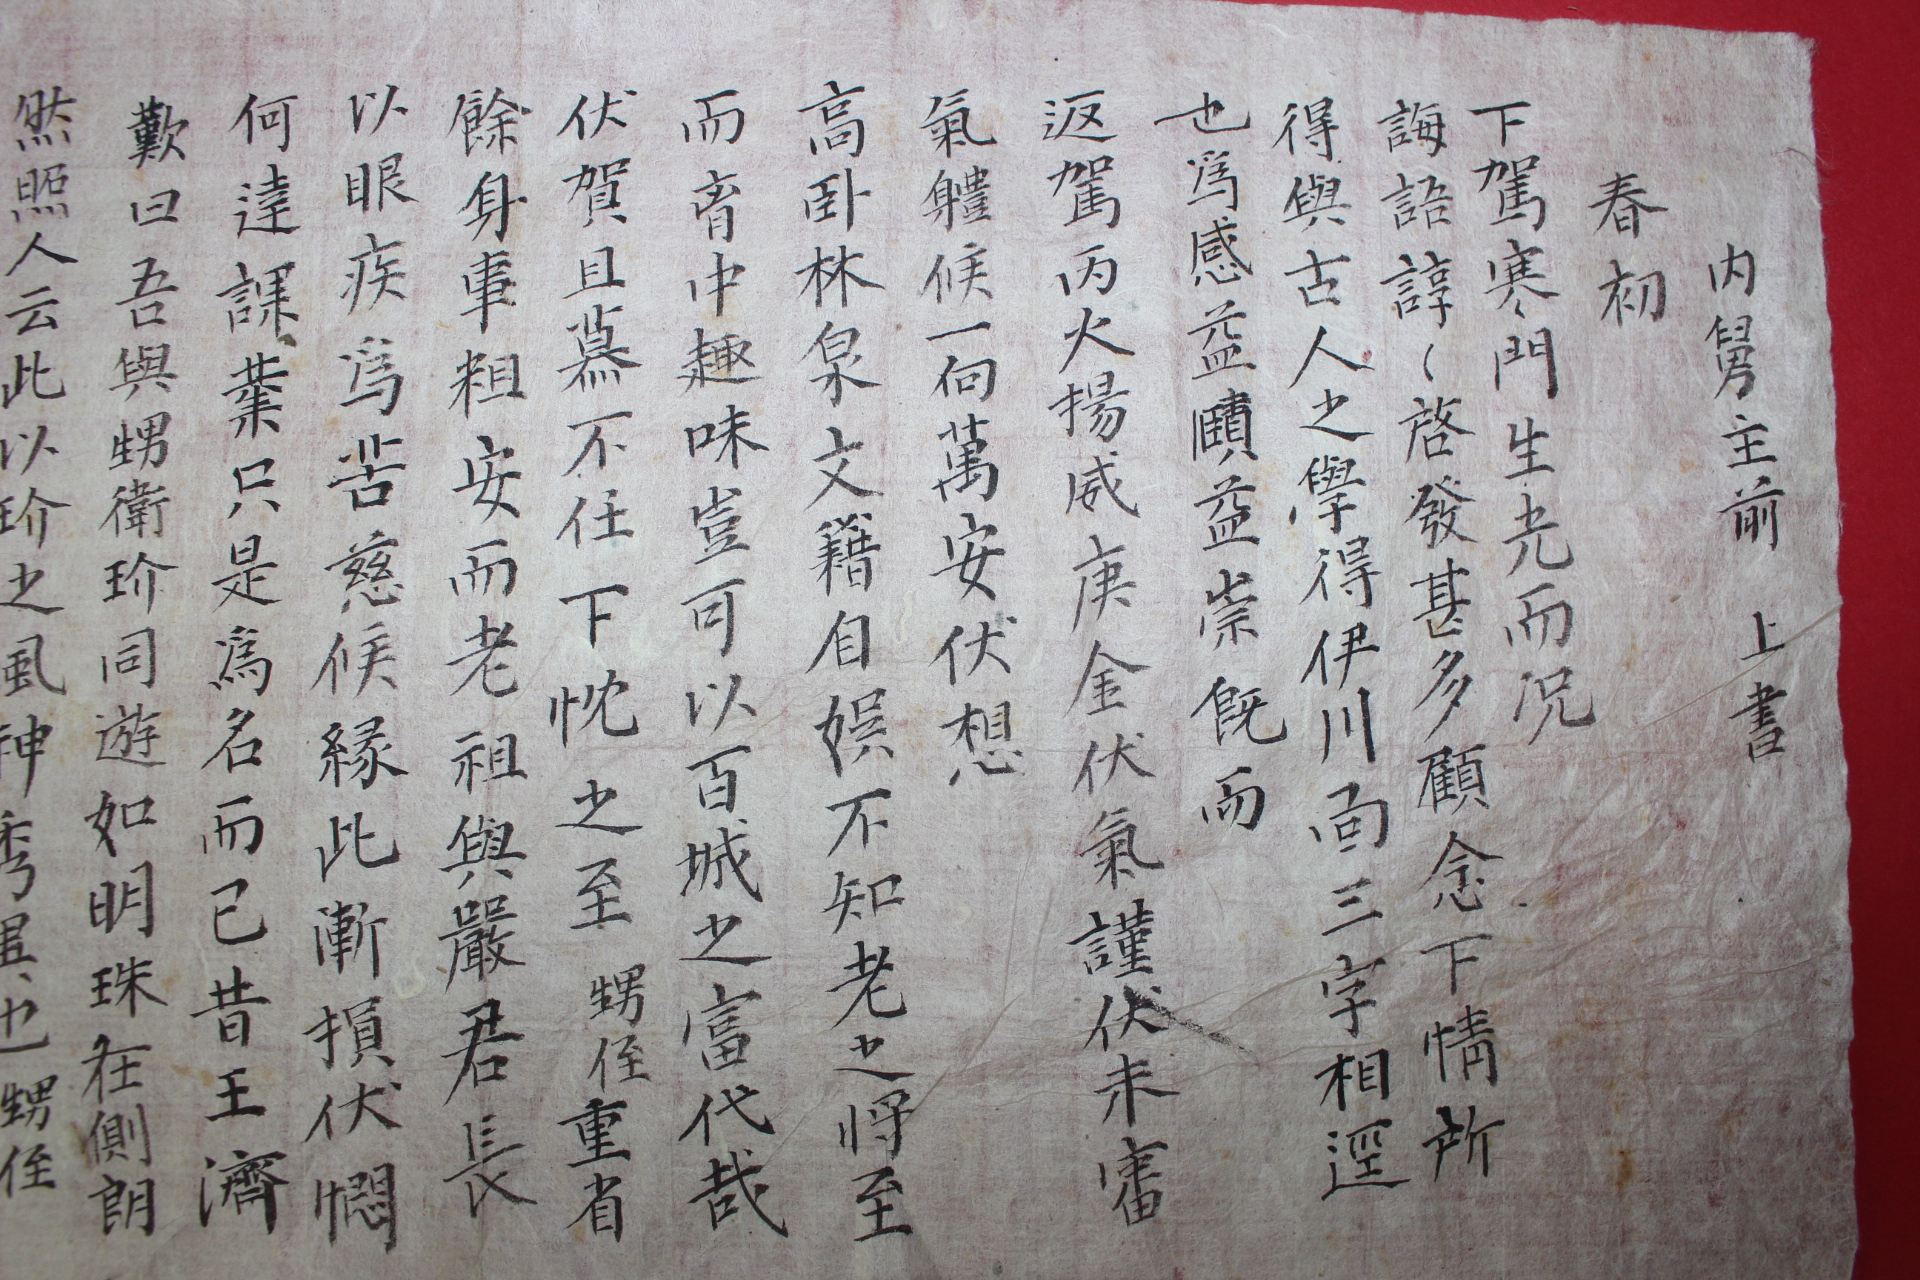 内舅主前 上書
春初
下駕寒門生光而況
誨語諄〻啓發甚多顧念下情所
得與古人之學得伊川面三字相逕
也爲感益賾益崇旣而
返駕丙火揚威庚金伏氣謹伏未審
氣體候一向萬安伏想
高卧林泉文籍自娛不知老之將至
而胷中趣味豈可以百城之富代哉
伏賀且慕不任下忱之至 甥侄重省
餘身事粗安而老祖與嚴君長
以眼疾爲苦慈候緣此漸損伏悶
何達課業只是爲名而已昔王濟
歎曰吾與甥衛玠同遊如明珠在側朗
然照人云此以玠之風神秀異也甥侄